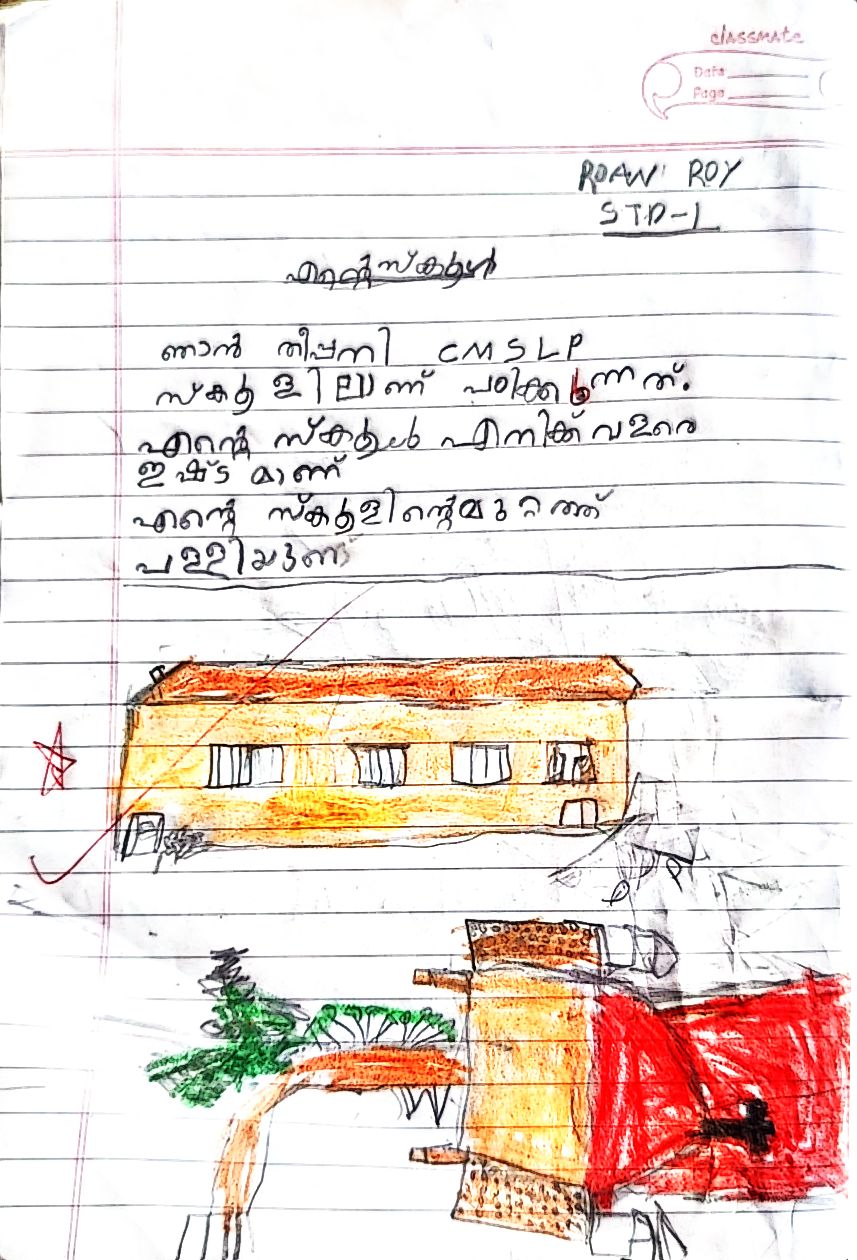 classmate
Date
Page
ROAN ROY
STD-1
എന്റെസ്കൂൾ
ഞാൻ തീപ്പനി CMSLP
സ്കൂളിലാണ് പഠിക്കുന്നത്.
എന്റെ സ്കൂൾ എനിക്ക് വളരെ
ഇഷ്ടമാണ്
എന്റെ സ്കൂളിന്റെമുറ്റത്ത്
പള്ളിയുണ്ട്